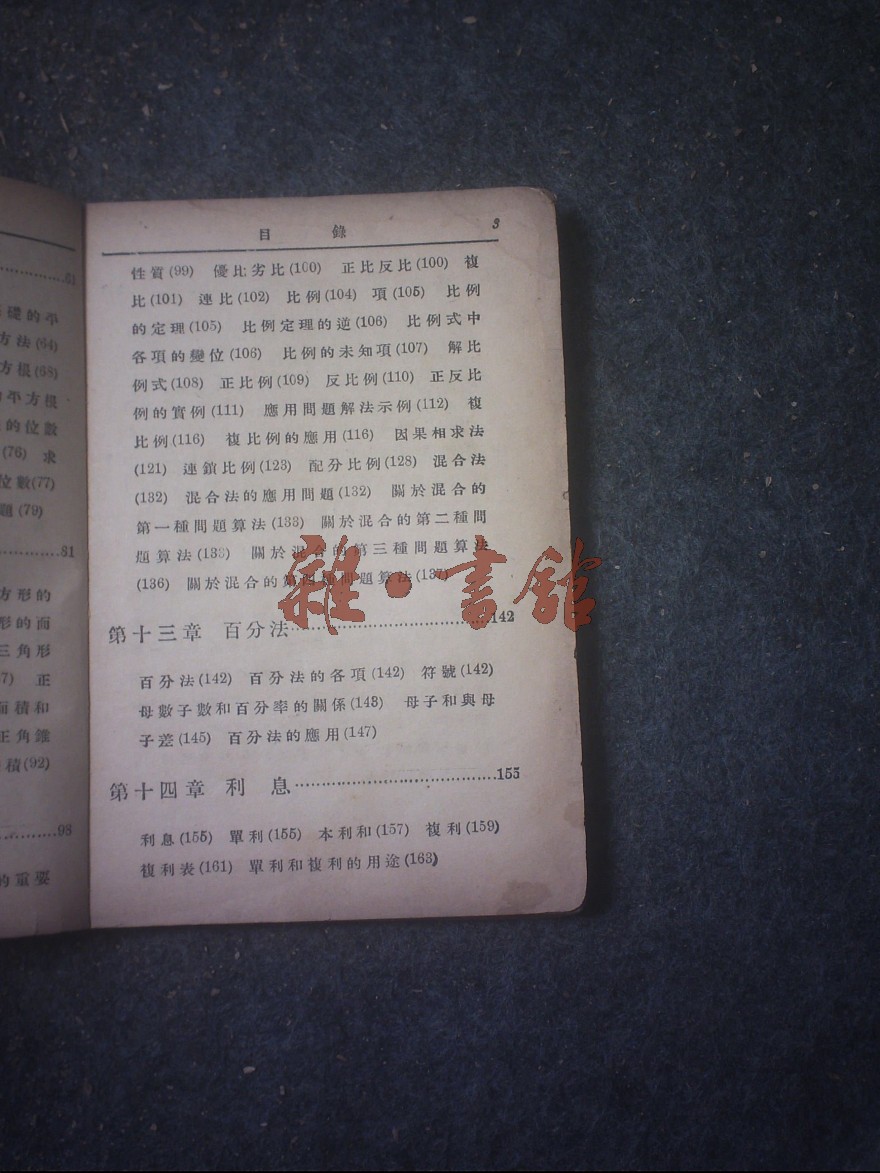 目 錄 3
性質(99) 優比劣比(100) 正比反比(100) 複
比(101) 連比(102) 比例(104) 項(105) 比例
的定理(105) 比例定理的逆(106) 比例式中
各項的變位(106) 比例的未知項(107) 解比
例式(108) 正比例(109) 反比例(110) 正反比
例的實例(111) 應用問題解法示例(112) 複
比例(116) 複比例的應用(116) 因果相求法
(121) 連鎖比例(123) 配分比例(128) 混合法
(132) 混合法的應用問題(132) 關於混合的
第一種問題算法(133) 關於混合的第二種問
題算法(133) 關於混合的第三種問題算法
(136) 關於混合的第四種問題算法(137)
第十三章 百分法……142
百分法(142) 百分法的各項(142) 符號(142)
母數子數和百分率的關係(143) 母子和與母
子差(145) 百分法的應用(147)
第十四章 利 息……155
利息(155) 單利(155) 本利和(157) 複利(159)
複利表(161) 單利和複利的用途(163)
雜·書館
……61
礎的平
方法(64)
方根(68)
平方根
的位數
(76) 求
位數(77)
題(79)
……81
方形的
形的面
三角形
7) 正
面積和
正角錐
積(92)
……98
的重要